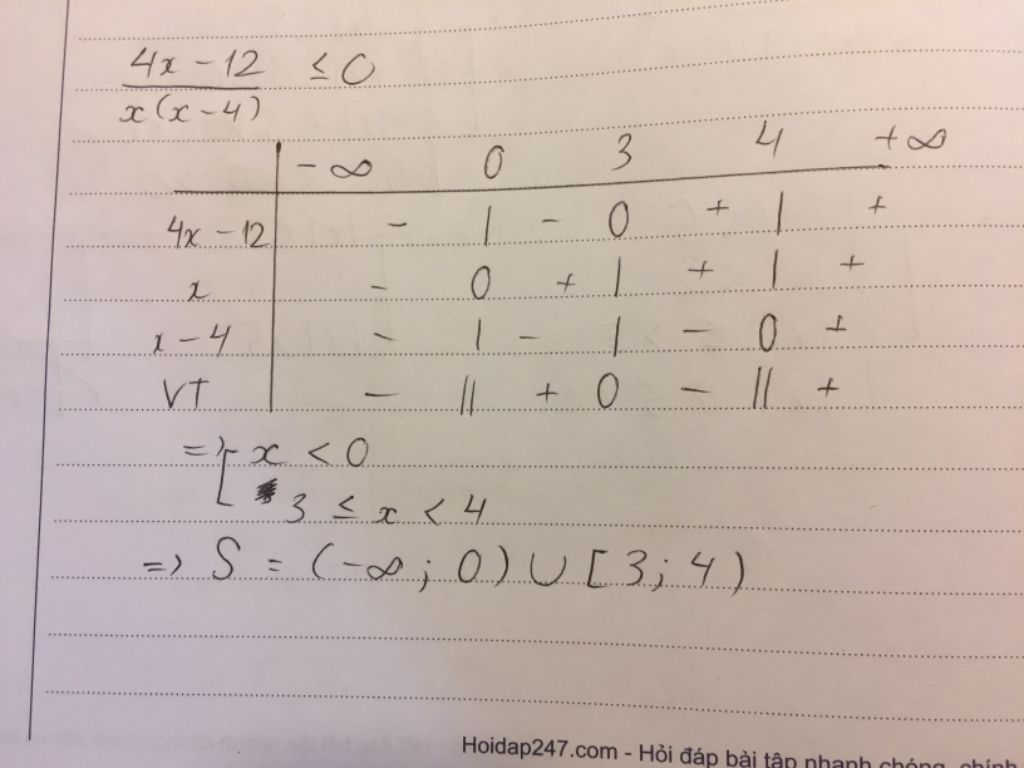 4x - 12 ≤ 0
x(x - 4)
-∞ 0 3 4 +∞
4x - 12 - | - 0 + | +
x - 0 + | + | +
x - 4 - | - | - 0 +
VT - || + 0 - || +
=> [ x < 0
3 ≤ x < 4
=> S = (-∞; 0) ∪ [3; 4)
Hoidap247.com - Hỏi đáp bài tập nhanh chóng, chính